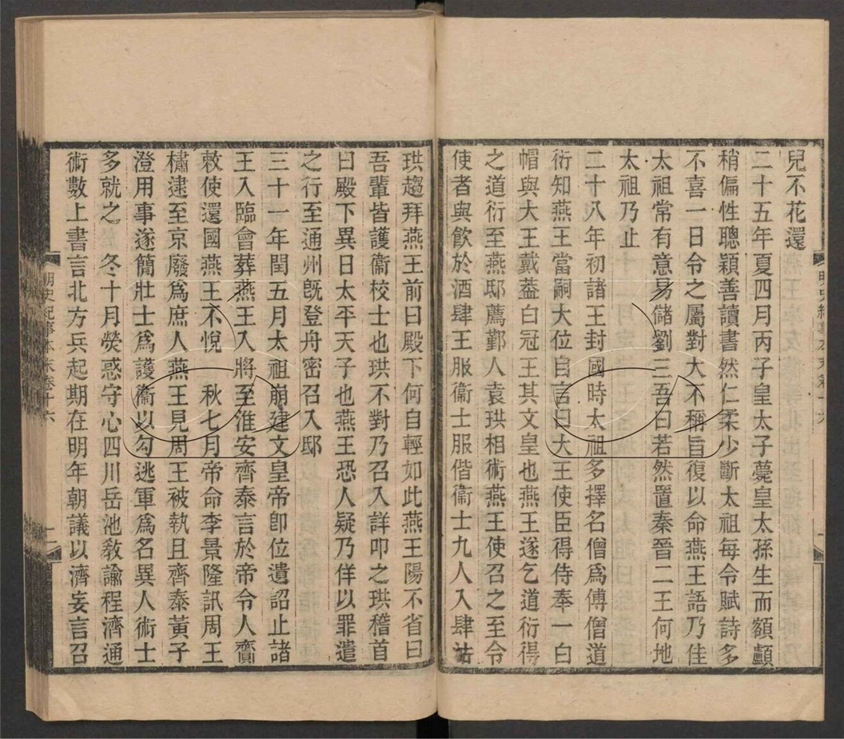 兒不花還
二十五年夏四月丙子皇太子薨皇太孫生而額顱
稍偏性聰穎善讀書然仁柔少斷太祖每令賦詩多
不喜一日令之屬對大不稱旨復以命燕王語乃佳
太祖常有意易儲劉三吾曰若然置秦晉二王何地
太祖乃止
二十八年初諸王封國時太祖多擇名僧為傅僧道
衍知燕王當嗣大位自言曰大王使臣得侍奉一白
帽與大王戴葢白冠王其文皇也燕王遂乞道衍得
之道衍至燕邸薦鄞人袁珙相術燕王使召之至令
使者與飲於酒肆王服衞士服偕衞士九人入肆沽
珙趨拜燕王前曰殿下何自輕如此燕王陽不省曰
吾輩皆護衞校士也珙不對乃召入詳叩之珙稽首
曰殿下異日太平天子也燕王恐人疑乃佯以罪遣
之行至通州旣登舟密召入邸
三十一年閏五月太祖崩建文皇帝卽位遺詔止諸
王入臨會葬燕王入將至淮安齊泰言於帝令人賫
敕使還國燕王不悅 秋七月帝命李景隆訊周王
橚逮至京廢為庶人燕王見周王被執且齊泰黃子
澄用事遂簡壯士為護衞以勾逃軍為名異人術士
多就之 冬十月熒惑守心四川岳池敎諭程濟通
術數上書言北方兵起期在明年朝議以濟妄言召
明史紀事本末卷十六